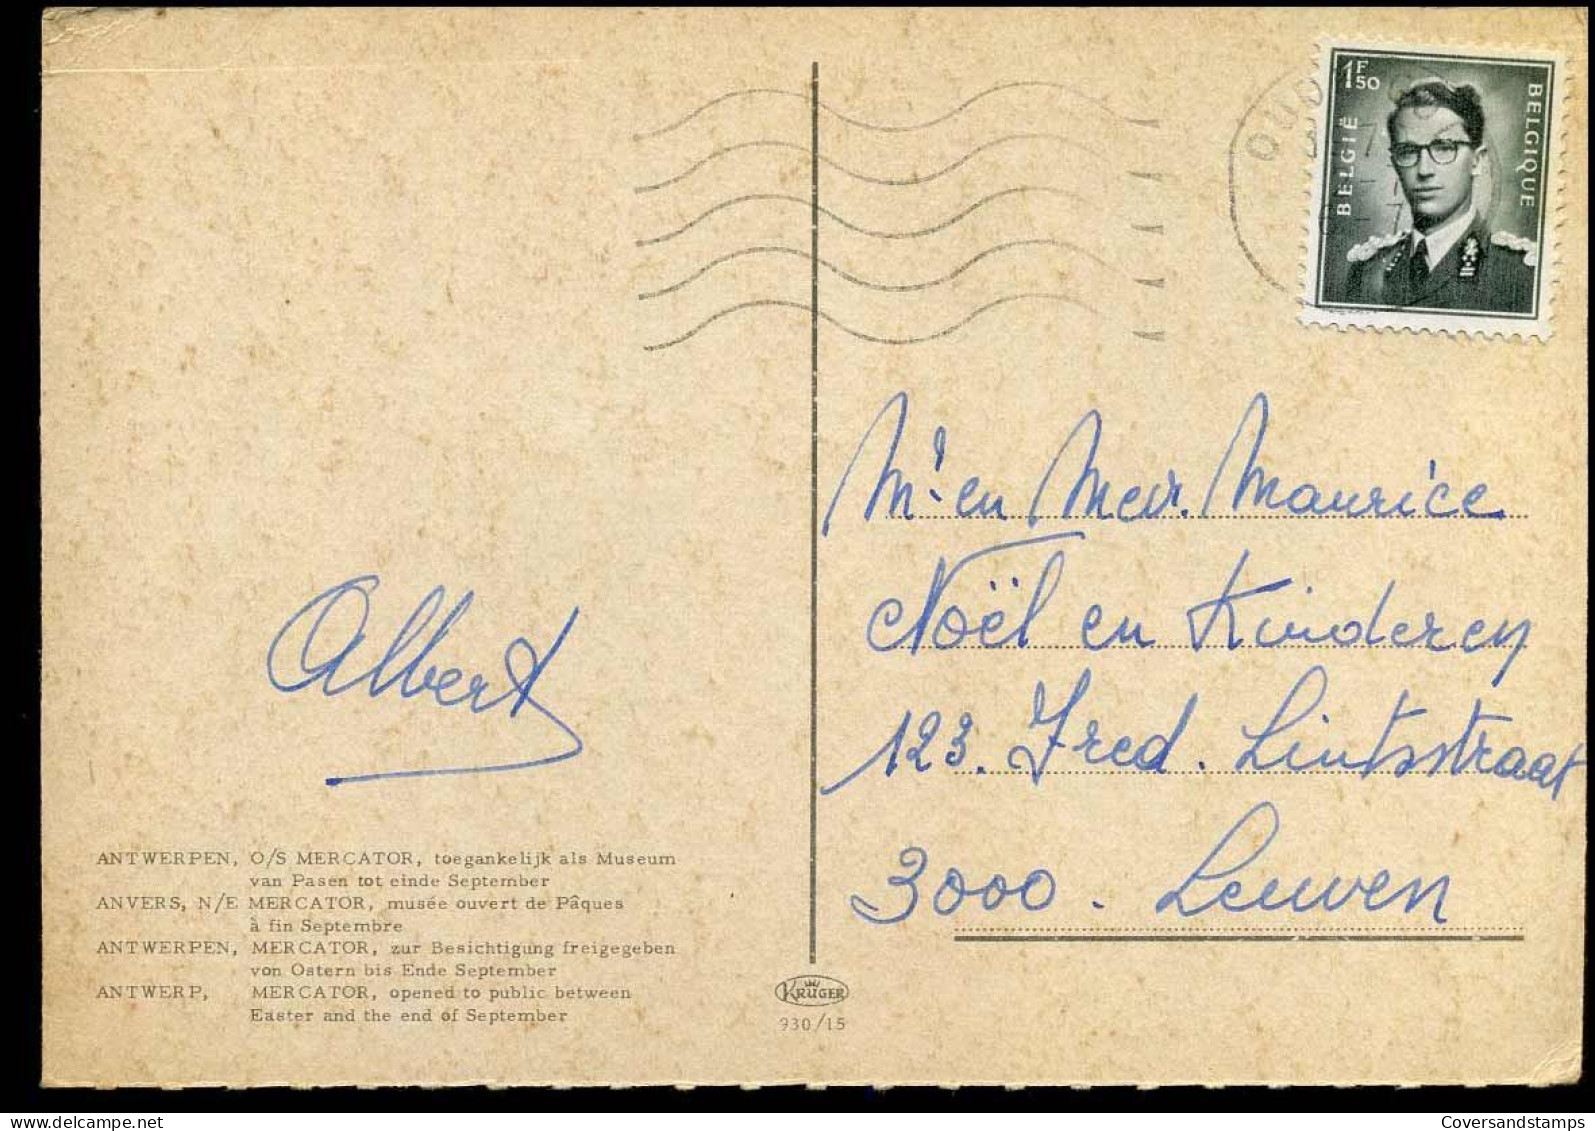 1F50
BELGIË
BELGIQUE
Mr. en Mevr. Maurice
Noël en Kinderen
123. Fred. Lintsstraat
3000. Leuven
Albert
ANTWERPEN, O/S MERCATOR, toegankelijk als Museum
van Pasen tot einde September
ANVERS, N/E MERCATOR, musée ouvert de Pâques
à fin Septembre
ANTWERPEN, MERCATOR, zur Besichtigung freigegeben
von Ostern bis Ende September
ANTWERP, MERCATOR, opened to public between
Easter and the end of September
KRÜGER
930/15
Coversandstamps